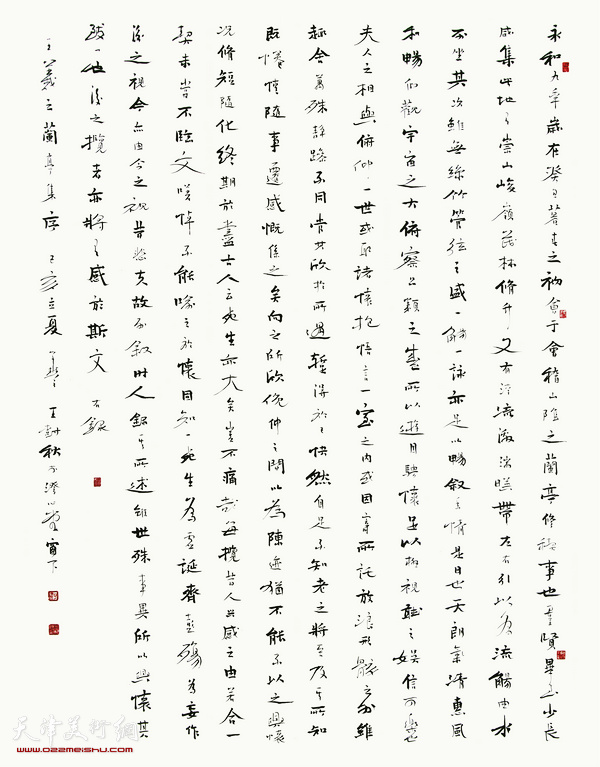 永和九年歲在癸丑暮春之初會于會稽山陰之蘭亭修禊事也群賢畢至少長
咸集此地有崇山峻嶺茂林修竹又有清流激湍映帶左右引以為流觴曲水
列坐其次雖無絲竹管弦之盛一觴一詠亦足以暢敘幽情是日也天朗氣清惠風
和暢仰觀宇宙之大俯察品類之盛所以遊目騁懷足以極視聽之娛信可樂也
夫人之相與俯仰一世或取諸懷抱悟言一室之內或因寄所託放浪形骸之外雖
趣舍萬殊靜躁不同當其欣於所遇暫得於己快然自足不知老之將至及其所知
既惓情隨事遷感慨係之矣向之所欣俛仰之間以為陳迹猶不能不以之興懷
況修短隨化終期於盡古人云死生亦大矣豈不痛哉每攬昔人興感之由若合一
契未嘗不臨文嗟悼不能喻之於懷固知一死生為虛誕齊彭殤為妄作
後之視今亦由今之視昔悲夫故列敘時人錄其所述雖世殊事異所以興懷其
致一也後之攬者亦將有感於斯文 右錄
王羲之蘭亭集序
天津美術網
www.022meishu.com